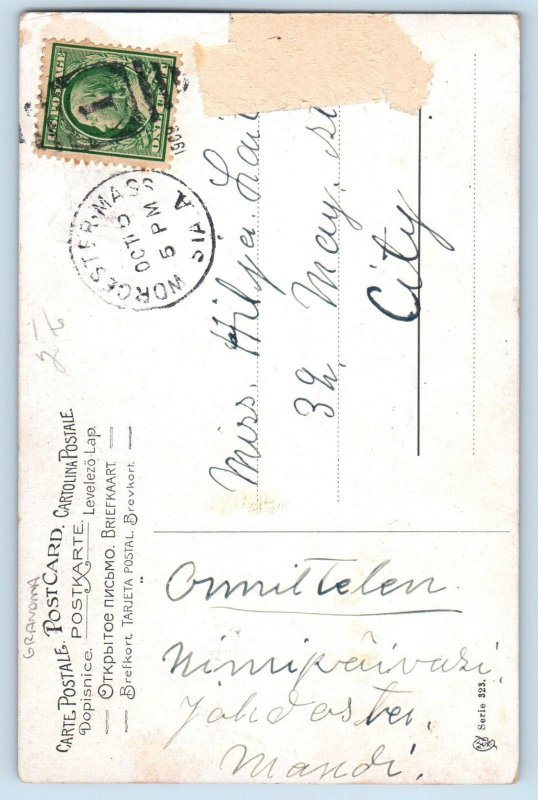 U.S. POSTAGE
ONE CENT
1
1909
WORCESTER, MASS
OCT 15
5 PM
STA. A
GRANDMA
CARTE POSTALE. POST CARD. CARTOLINA POSTALE.
Dopisnice. POSTKARTE. Levelező-Lap.
ОТКРЫТОЕ ПИСЬМО. BRIEFKAART.
Brefkort. TARJETA POSTAL. Brevkort.
Miss. Hilja
32. May. st
City
Onnittelen
Nimipäiväsi
Johdosta.
Mandi.
Serie 323.